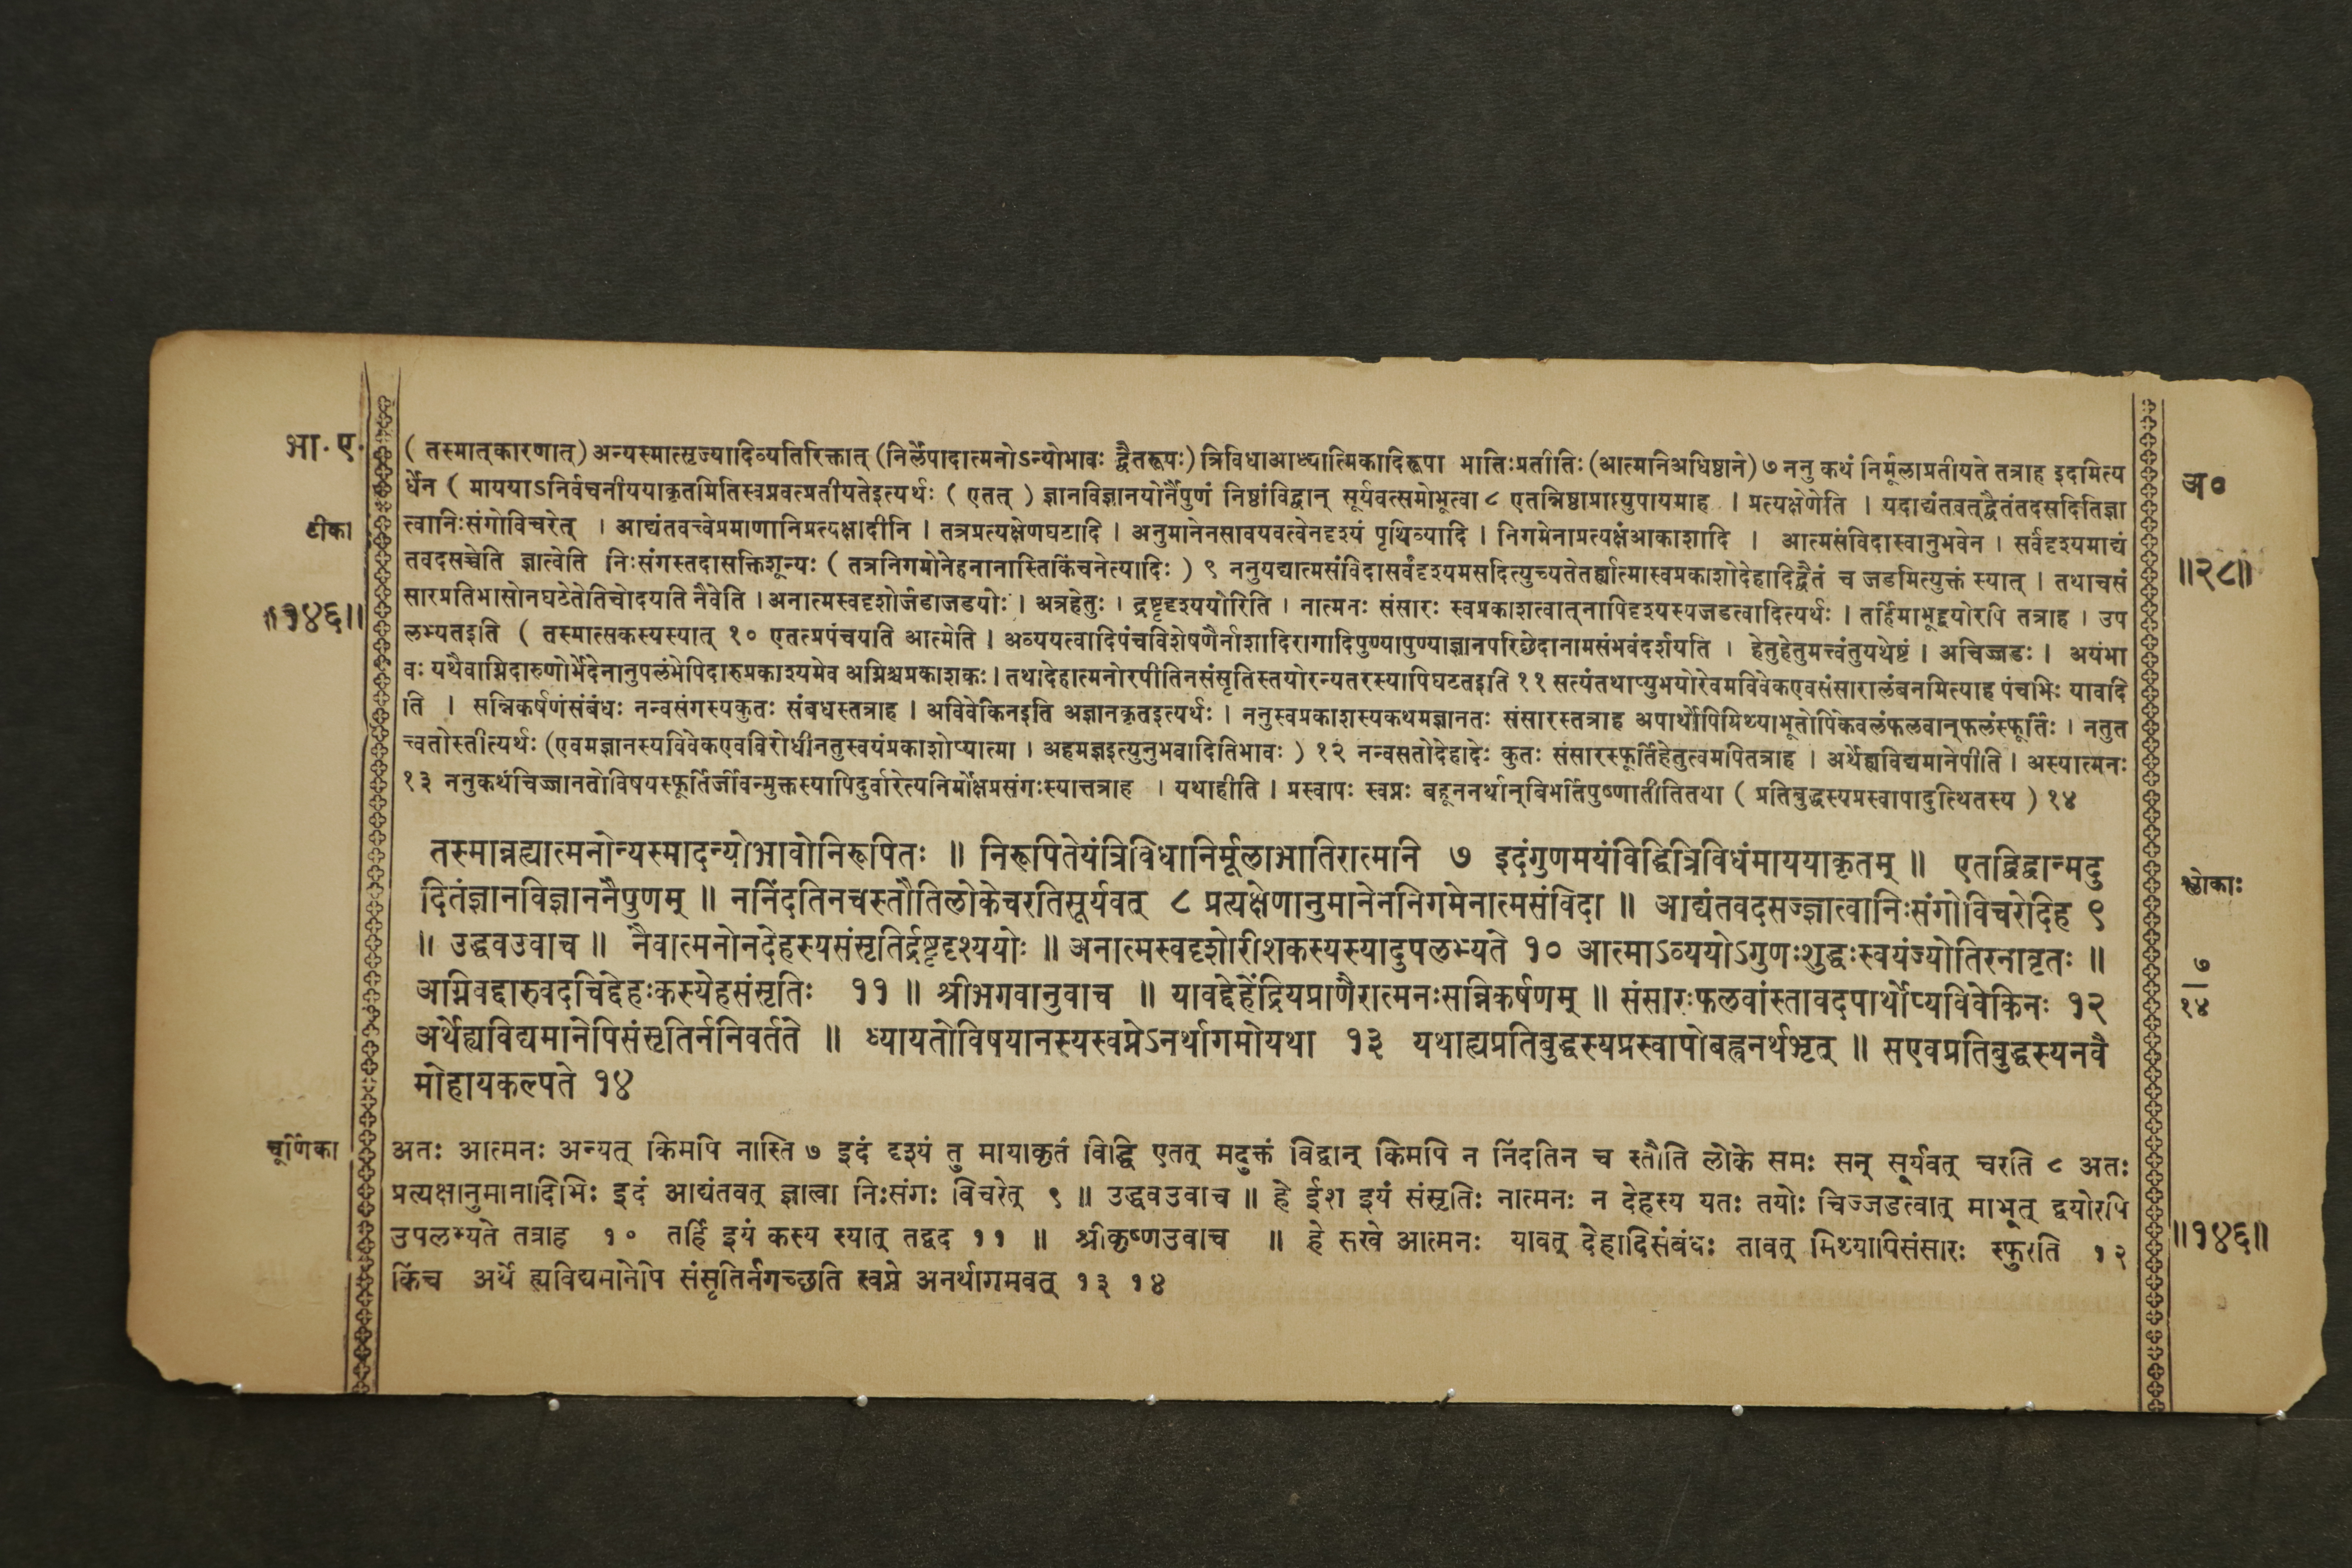 भा.ए.
( तस्मात्कारणात्) अन्यस्मात्सृज्यादिव्यतिरिक्तात् (निर्लेपादात्मनोऽन्योभावः द्वैतरूपः) त्रिविधाआध्यात्मिकादिरूपा भातिःप्रतीतिः (आत्मनिअधिष्ठाने) ७ ननु कथं निर्मूलाप्रतीयते तत्राह इदमित्य
अ०
र्धेन ( माययाऽनिर्वचनीययाकृतमितिस्वप्नवत्प्रतीयतेइत्यर्थः ( एतत् ) ज्ञानविज्ञानयोर्नैपुणं निष्ठांविद्वान् सूर्यवत्समोभूत्वा ८ एतन्निष्ठाप्राप्त्युपायमाह । प्रत्यक्षेणेति । यदाद्यंतवत्द्वैतंतदसदितिज्ञा
टीका
त्वानिःसंगोविचरेत् । आद्यंतवत्त्वेप्रमाणानिप्रत्यक्षादीनि । तत्रप्रत्यक्षेणघटादि । अनुमानेनसावयवत्वेनदृश्यं पृथिव्यादि । निगमेनाप्रत्यक्षंआकाशादि । आत्मसंविदास्वानुभवेन । सर्वदृश्यमाद्यं
तवदसच्चेति ज्ञात्वेति निःसंगस्तदासक्तिशून्यः ( तत्रनिगमोनेहनानास्तिकिंचनेत्यादिः ) ९ ननुयद्यात्मसंविदासर्वंदृश्यमसदित्युच्यतेतर्ह्यात्मास्वप्रकाशोदेहादिद्वैतं च जडमित्युक्तं स्यात् । तथाचसं
॥२८॥
सारप्रतिभासोनघटेतेतिचोदयति नैवेति । अनात्मस्वदृशोर्जडाजडयोः । अत्रहेतुः । द्रष्टृदृश्ययोरिति । नात्मनः संसारः स्वप्रकाशत्वात्नापिदृश्यस्यजडत्वादित्यर्थः । तर्हिमाभूद्द्वयोरपि तत्राह । उप
॥१४६॥
लभ्यतइति ( तस्मात्सकस्यस्यात् १० एतत्प्रपंचयति आत्मेति । अव्ययत्वादिपंचविशेषणैर्नाशादिरागादिपुण्यापुण्याज्ञानपरिछेदानामसंभवंदर्शयति । हेतुहेतुमत्त्वंतुयथेष्टं । अचिज्जडः । अयंभा
वः यथैवाग्निदारुणोर्भेदेनानुपलंभेपिदारुप्रकाश्यमेव अग्निश्चप्रकाशकः । तथादेहात्मनोरपीतिनसंसृतिस्तयोरन्यतरस्यापिघटतइति ११ सत्यंतथाप्युभयोरेवमविवेकएवसंसारालंबनमित्याह पंचभिः यावदि
ति । सन्निकर्षणंसंबंधः नन्वसंगस्यकुतः संबधस्तत्राह । अविवेकिनइति अज्ञानकृतइत्यर्थः । ननुस्वप्रकाशस्यकथमज्ञानतः संसारस्तत्राह अपार्थोपिमिथ्याभूतोपिकेवलंफलवान्फलंस्फूर्तिः । नतुत
त्त्वतोस्तीत्यर्थः (एवमज्ञानस्यविवेकएवविरोधीनतुस्वयंप्रकाशोप्यात्मा । अहमज्ञइत्युनुभवादितिभावः ) १२ नन्वसतोदेहादेः कुतः संसारस्फूर्तिहेतुत्वमपितत्राह । अर्थेह्यविद्यमानेपीति । अस्यात्मनः
१३ ननुकथंचिज्जानतोविषयस्फूर्तिर्जीवन्मुक्तस्यापिदुर्वारेत्यनिर्मोक्षप्रसंगःस्यात्तत्राह । यथाहीति । प्रस्वापः स्वप्नः बहूननर्थान्बिभर्तिपुष्णातीतितथा ( प्रतिबुद्धस्यप्रस्वापादुत्थितस्य ) १४
तस्मान्नह्यात्मनोन्यस्मादन्योभावोनिरूपितः ॥ निरूपितेयंत्रिविधानिर्मूलाभातिरात्मनि ७ इदंगुणमयंविद्धित्रिविधंमाययाकृतम् ॥ एतद्विद्वान्मदु
श्लोकाः
दितंज्ञानविज्ञाननैपुणम् ॥ ननिंदतिनचस्तौतिलोकेचरतिसूर्यवत् ८ प्रत्यक्षेणानुमानेननिगमेनात्मसंविदा ॥ आद्यंतवदसज्ज्ञात्वानिःसंगोविचरेदिह ९
॥ उद्धवउवाच ॥ नैवात्मनोनदेहस्यसंसृतिर्द्रष्टृदृश्ययोः ॥ अनात्मस्वदृशोरीशकस्यस्यादुपलभ्यते १० आत्माऽव्ययोऽगुणःशुद्धःस्वयंज्योतिरनावृतः ॥
७
अग्निवद्दारुवदचिद्देहःकस्येहसंसृतिः ११ ॥ श्रीभगवानुवाच ॥ यावद्देहेंद्रियप्राणैरात्मनःसन्निकर्षणम् ॥ संसारःफलवांस्तावदपार्थोप्यविवेकिनः १२
१४
अर्थेह्यविद्यमानेपिसंसृतिर्ननिवर्तते ॥ ध्यायतोविषयानस्यस्वप्नेऽनर्थागमोयथा १३ यथाह्यप्रतिबुद्धस्यप्रस्वापोबह्वनर्थभृत् ॥ सएवप्रतिबुद्धस्यनवै
मोहायकल्पते १४
चूर्णिका
अतः आत्मनः अन्यत् किमपि नास्ति ७ इदं दृश्यं तु मायाकृतं विद्धि एतत् मदुक्तं विद्वान् किमपि न निंदतिन च स्तौति लोके समः सन् सूर्यवत् चरति ८ अतः
प्रत्यक्षानुमानादिभिः इदं आद्यंतवत् ज्ञात्वा निःसंगः विचरेत् ९ ॥ उद्धवउवाच ॥ हे ईश इयं संसृतिः नात्मनः न देहस्य यतः तयोः चिज्जडत्वात् माभूत् द्वयोरपि
उपलभ्यते तत्राह १० तर्हि इयं कस्य स्यात् तद्वद ११ ॥ श्रीकृष्णउवाच ॥ हे सखे आत्मनः यावत् देहादिसंबंधः तावत् मिथ्यापिसंसारः स्फुरति १२
॥१४६॥
किंच अर्थे ह्यविद्यमानेपि संसृतिर्नगच्छति स्वप्ने अनर्थागमवत् १३ १४